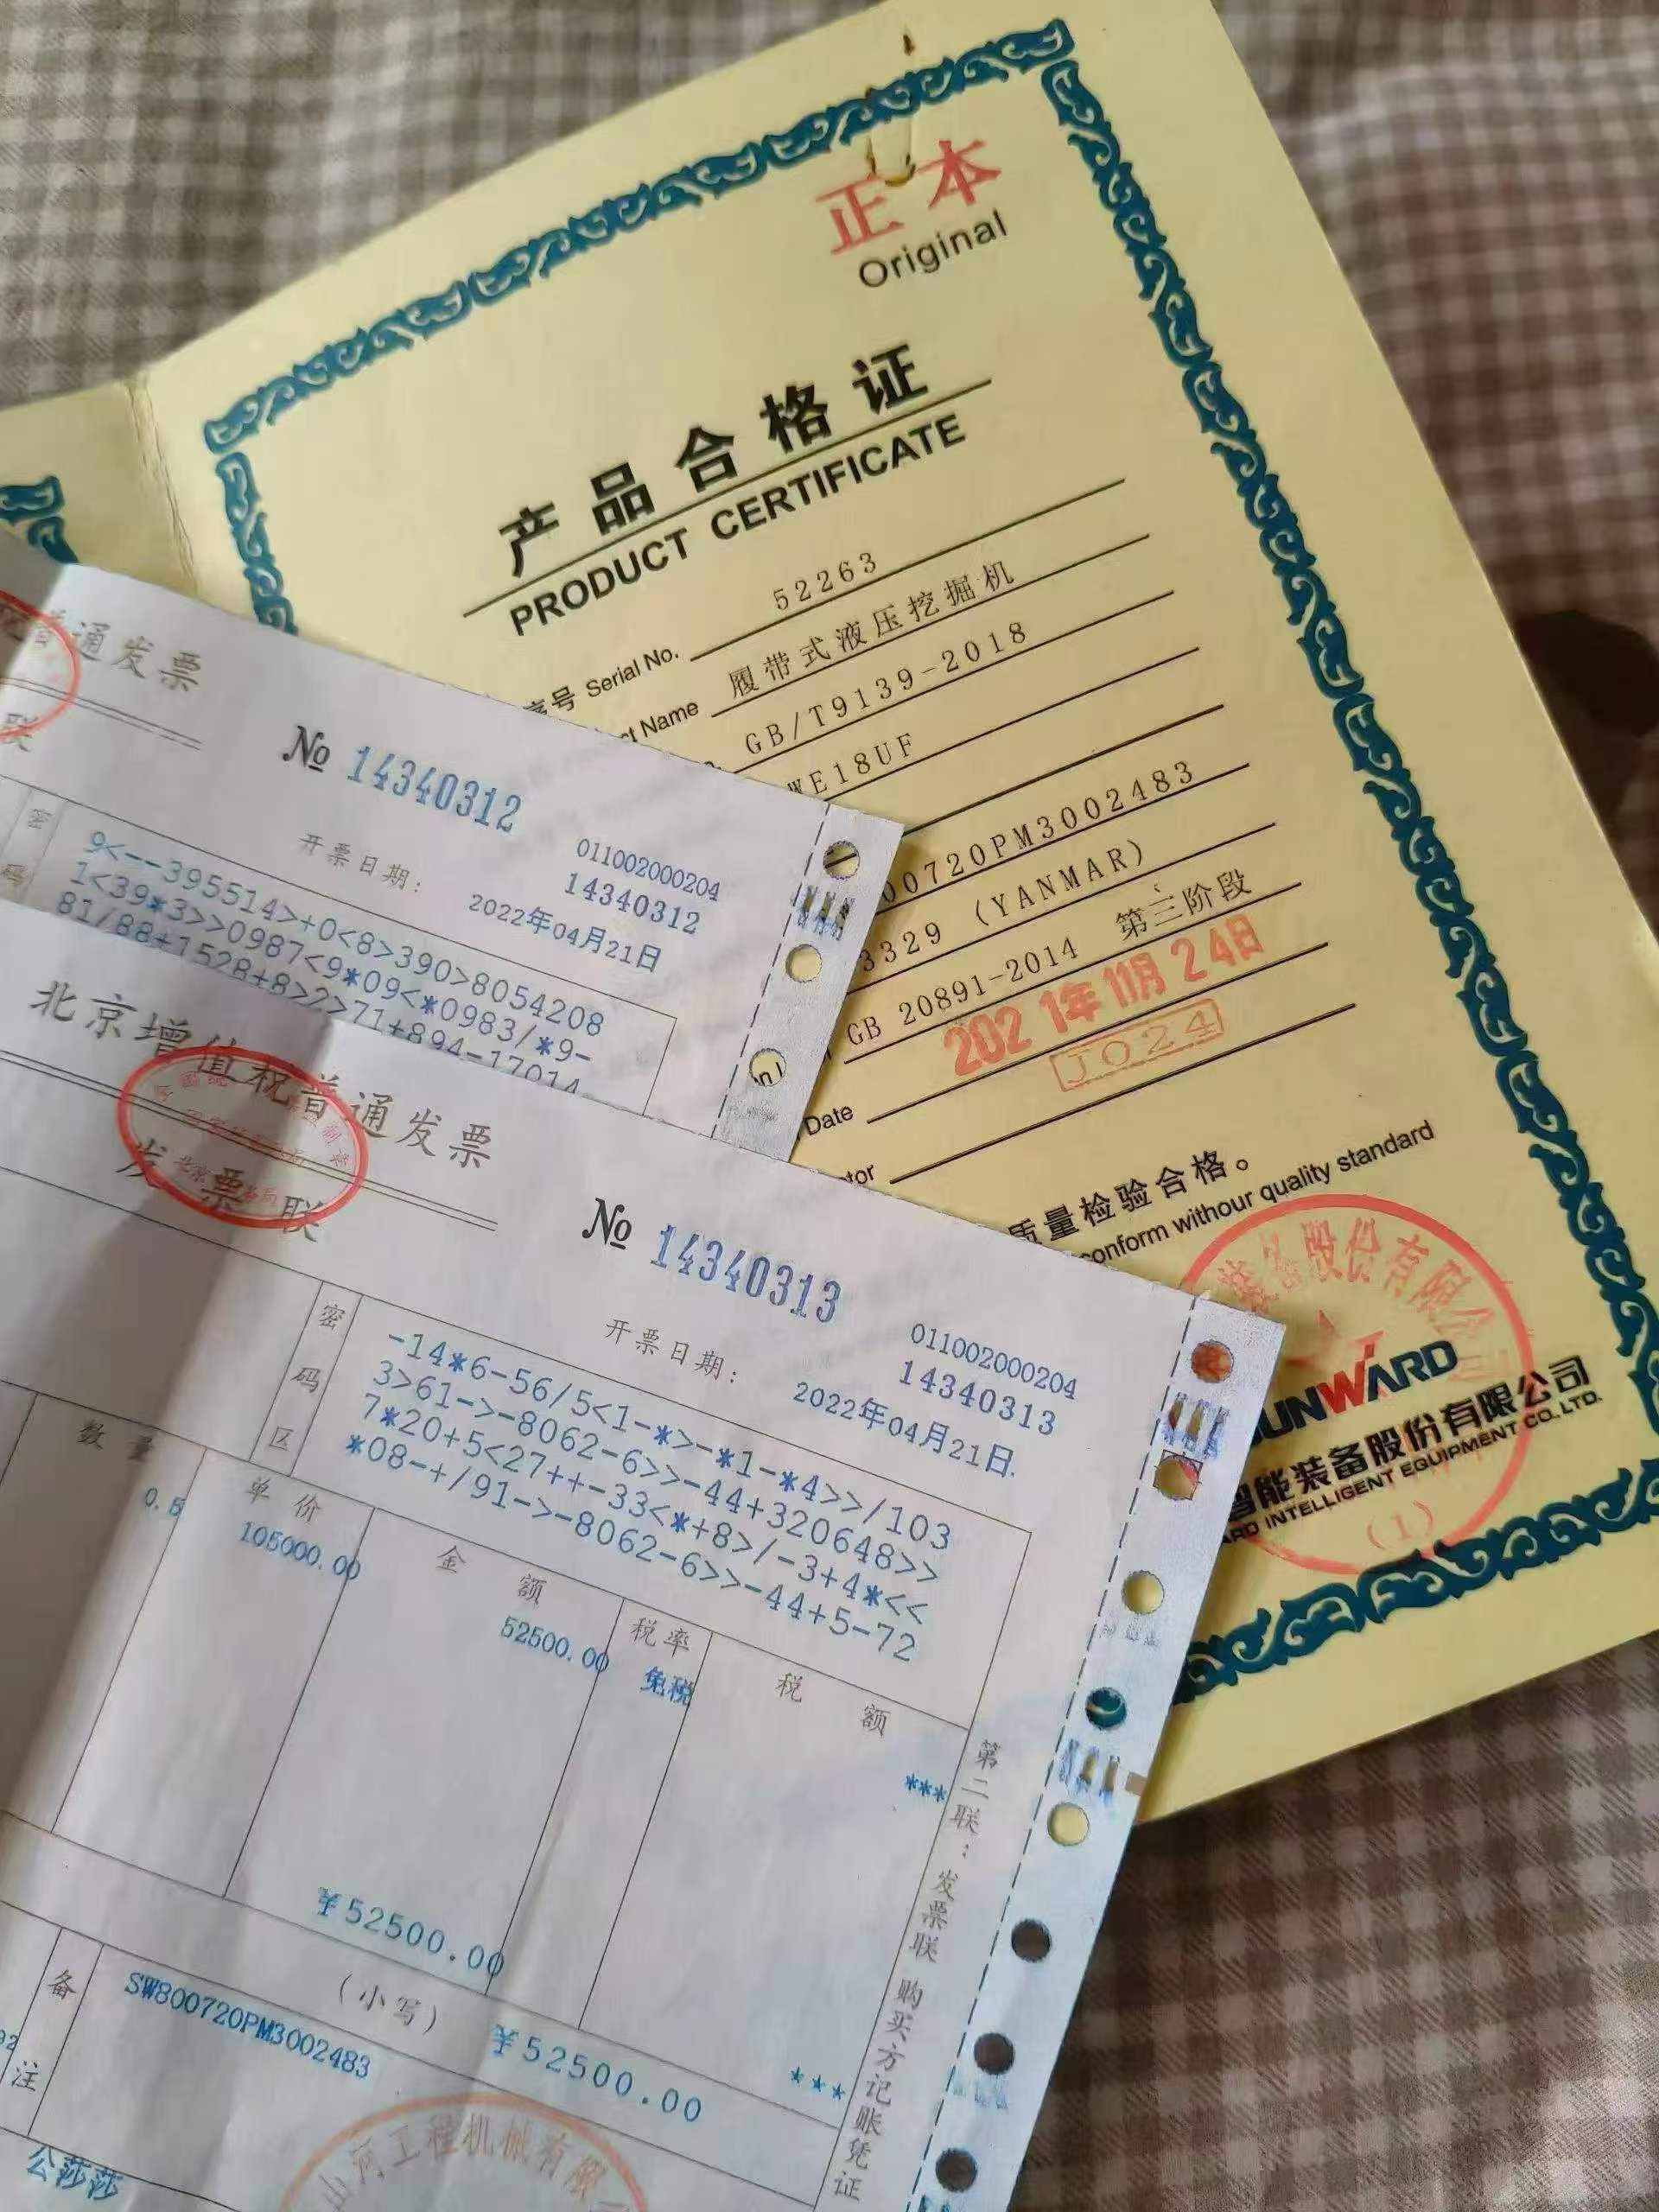 正本
Original
产品合格证
PRODUCT CERTIFICATE
序号 Serial No. 52263
Name 履带式液压挖掘机
GB/T9139-2018
WE18UF
00720PM3002483
3329 (YANMAR)
GB 20891-2014 第三阶段
2021年11月24日
Date
J024
质量检验合格。
conform withour quality standard
装备股份有限公司
SUNWARD
智能装备股份有限公司
ARD INTELLIGENT EQUIPMENT CO., LTD.
(1)
普通发票
联
№ 14340312
011002000204
14340312
开票日期: 2022年04月21日
密码
9<--395514>+0<8>390>8054208
1<39*3>>0987<9*09<*0983/*9-
81/88+1528+8>2>71+894-17014
北京增值税普通发票
发票联
№ 14340313
011002000204
14340313
开票日期: 2022年04月21日
密码区
-14*6-56/5<1-*>-*1-*4>>/103
3>61->-8062-6>>-44+320648>>
7*20+5<27++-33<*+8>/-3+4*<<
*08-+/91->-8062-6>>-44+5-72
数量 单价 金额 税率 税额
0.5 105000.00 52500.00 免税 ***
¥52500.00 ***
(小写) ¥52500.00
备注
SW800720PM3002483
第二联:发票联 购买方记账凭证
山河工程机械有限
公莎莎